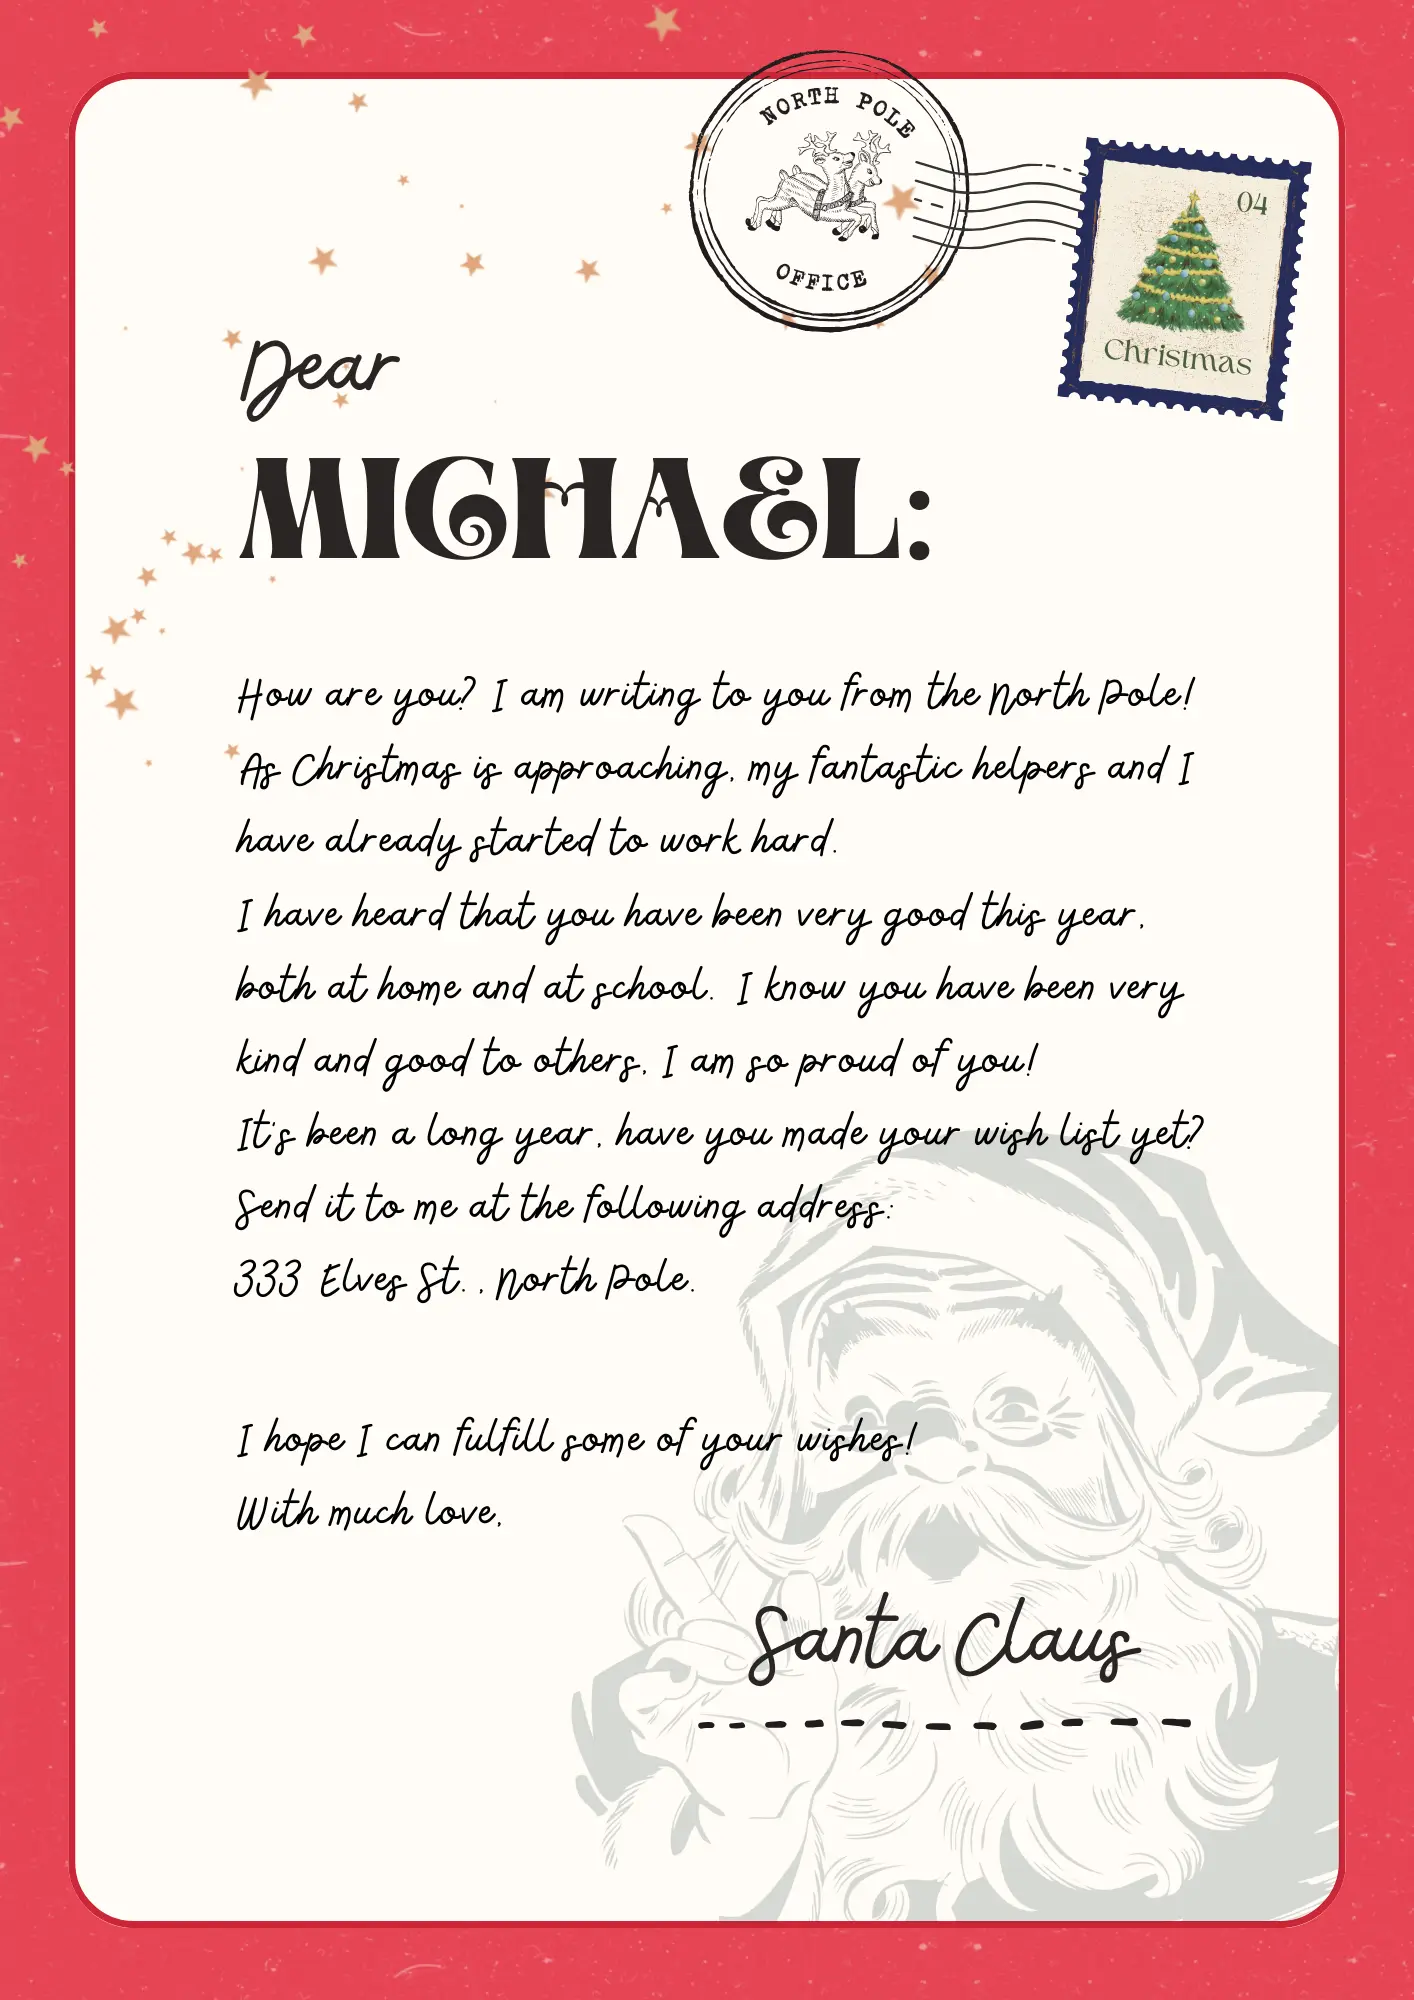 NORTH POLE
OFFICE
04
Christmas
Dear
MICHAEL:
How are you? I am writing to you from the North Pole!
As Christmas is approaching, my fantastic helpers and I
have already started to work hard.
I have heard that you have been very good this year,
both at home and at school. I know you have been very
kind and good to others, I am so proud of you!
It's been a long year, have you made your wish list yet?
Send it to me at the following address:
333 Elves St. , North Pole.
I hope I can fulfill some of your wishes!
With much love,
Santa Claus